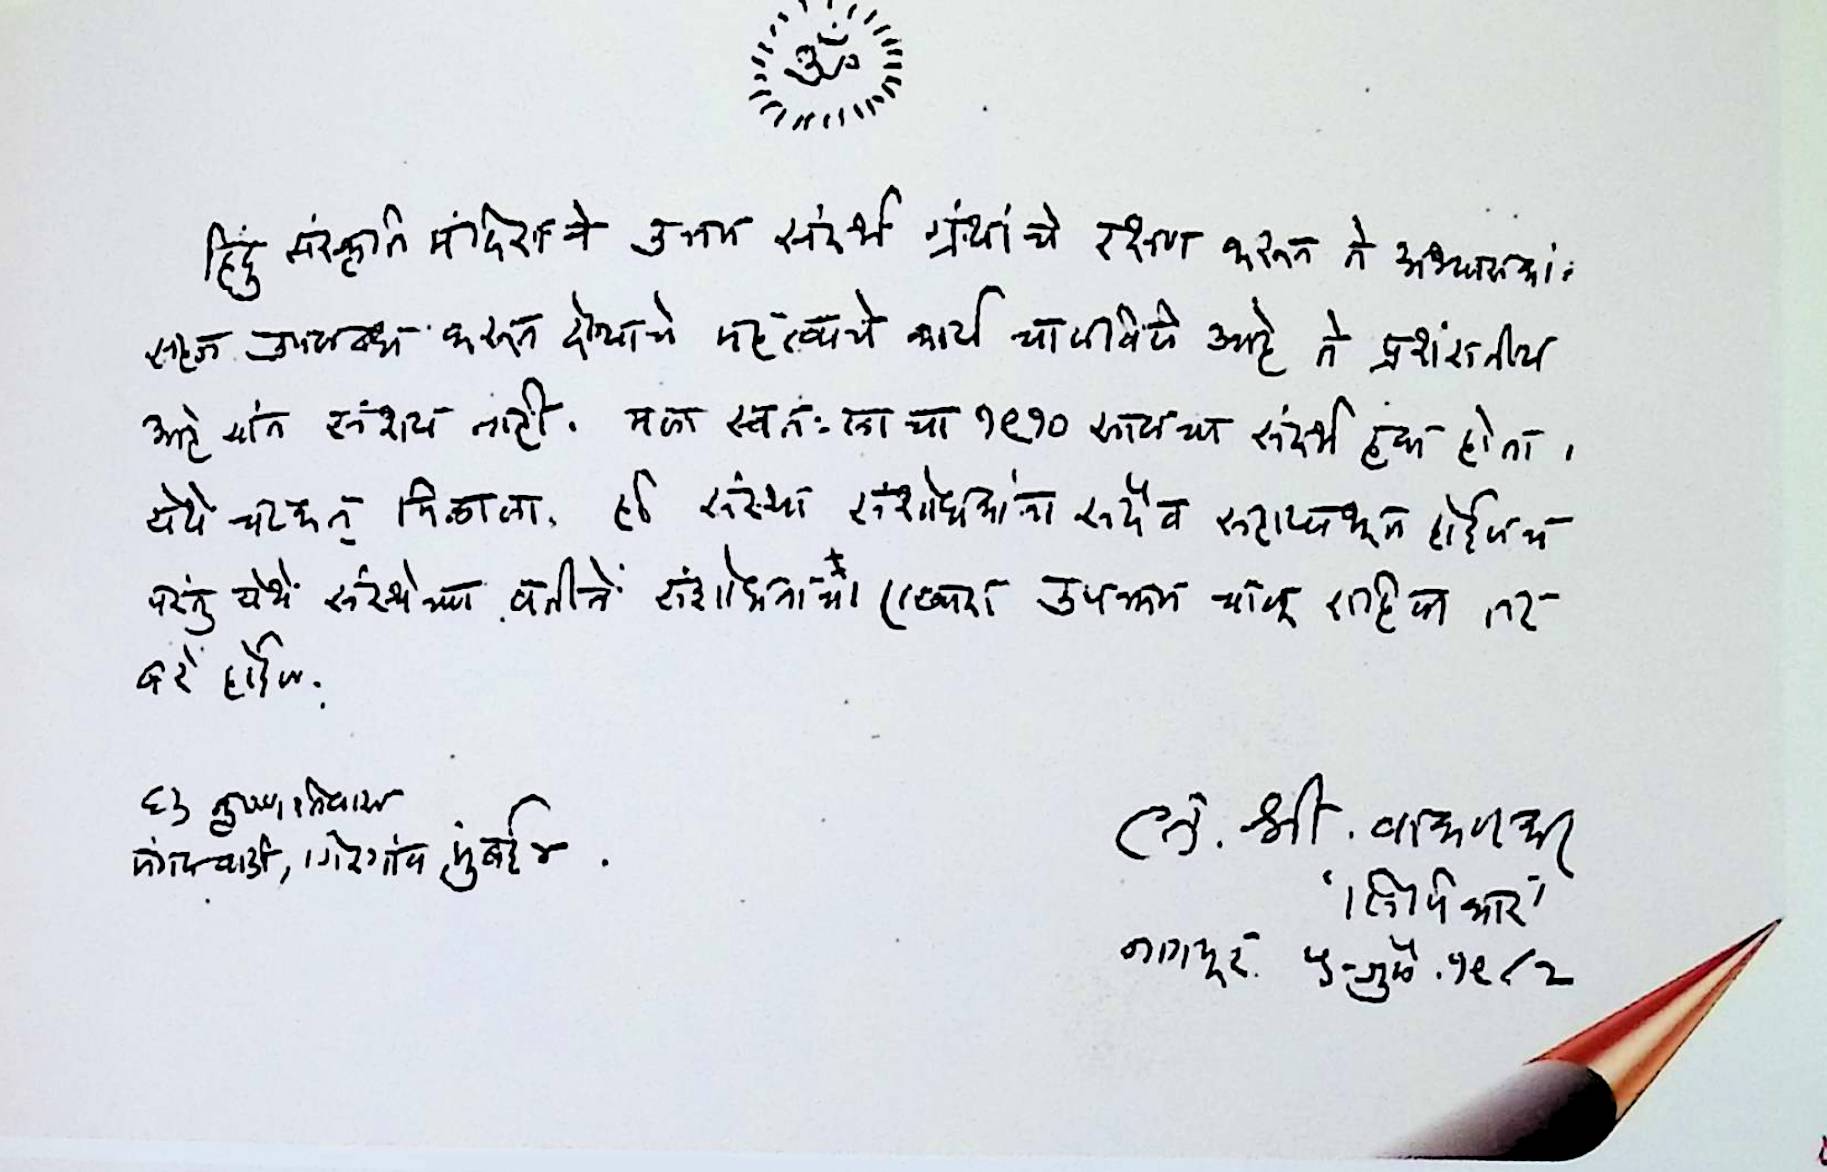 ॐ
हिंदु संस्कृति मंदिराने उत्तम संदर्भ ग्रंथांचे रक्षण करून ते अभ्यासकां.
सहज उपलब्ध करून देण्याचे महत्वाचे कार्य चालविले आहे ते प्रशंसनीय
आहे यांत संशय नाही. मला स्वतःला चा १९१० सालचा संदर्भ हवा होता.
येथे चटकन् मिळाला. ही संस्था संशोधकांना सदैव सहाय्यभूत होईलच
परंतु येथे संस्थेच्या वतीने संशोधनाचा उपक्रम चालू राहिला तर
बरे होईल.
६३ कृष्णनिवास
मंगलवाडी, गिरगांव मुंबई ४.
ल. श्री. वाकणकर
'लिपिकार'
नागपूर. ५-जुलै.१९८२